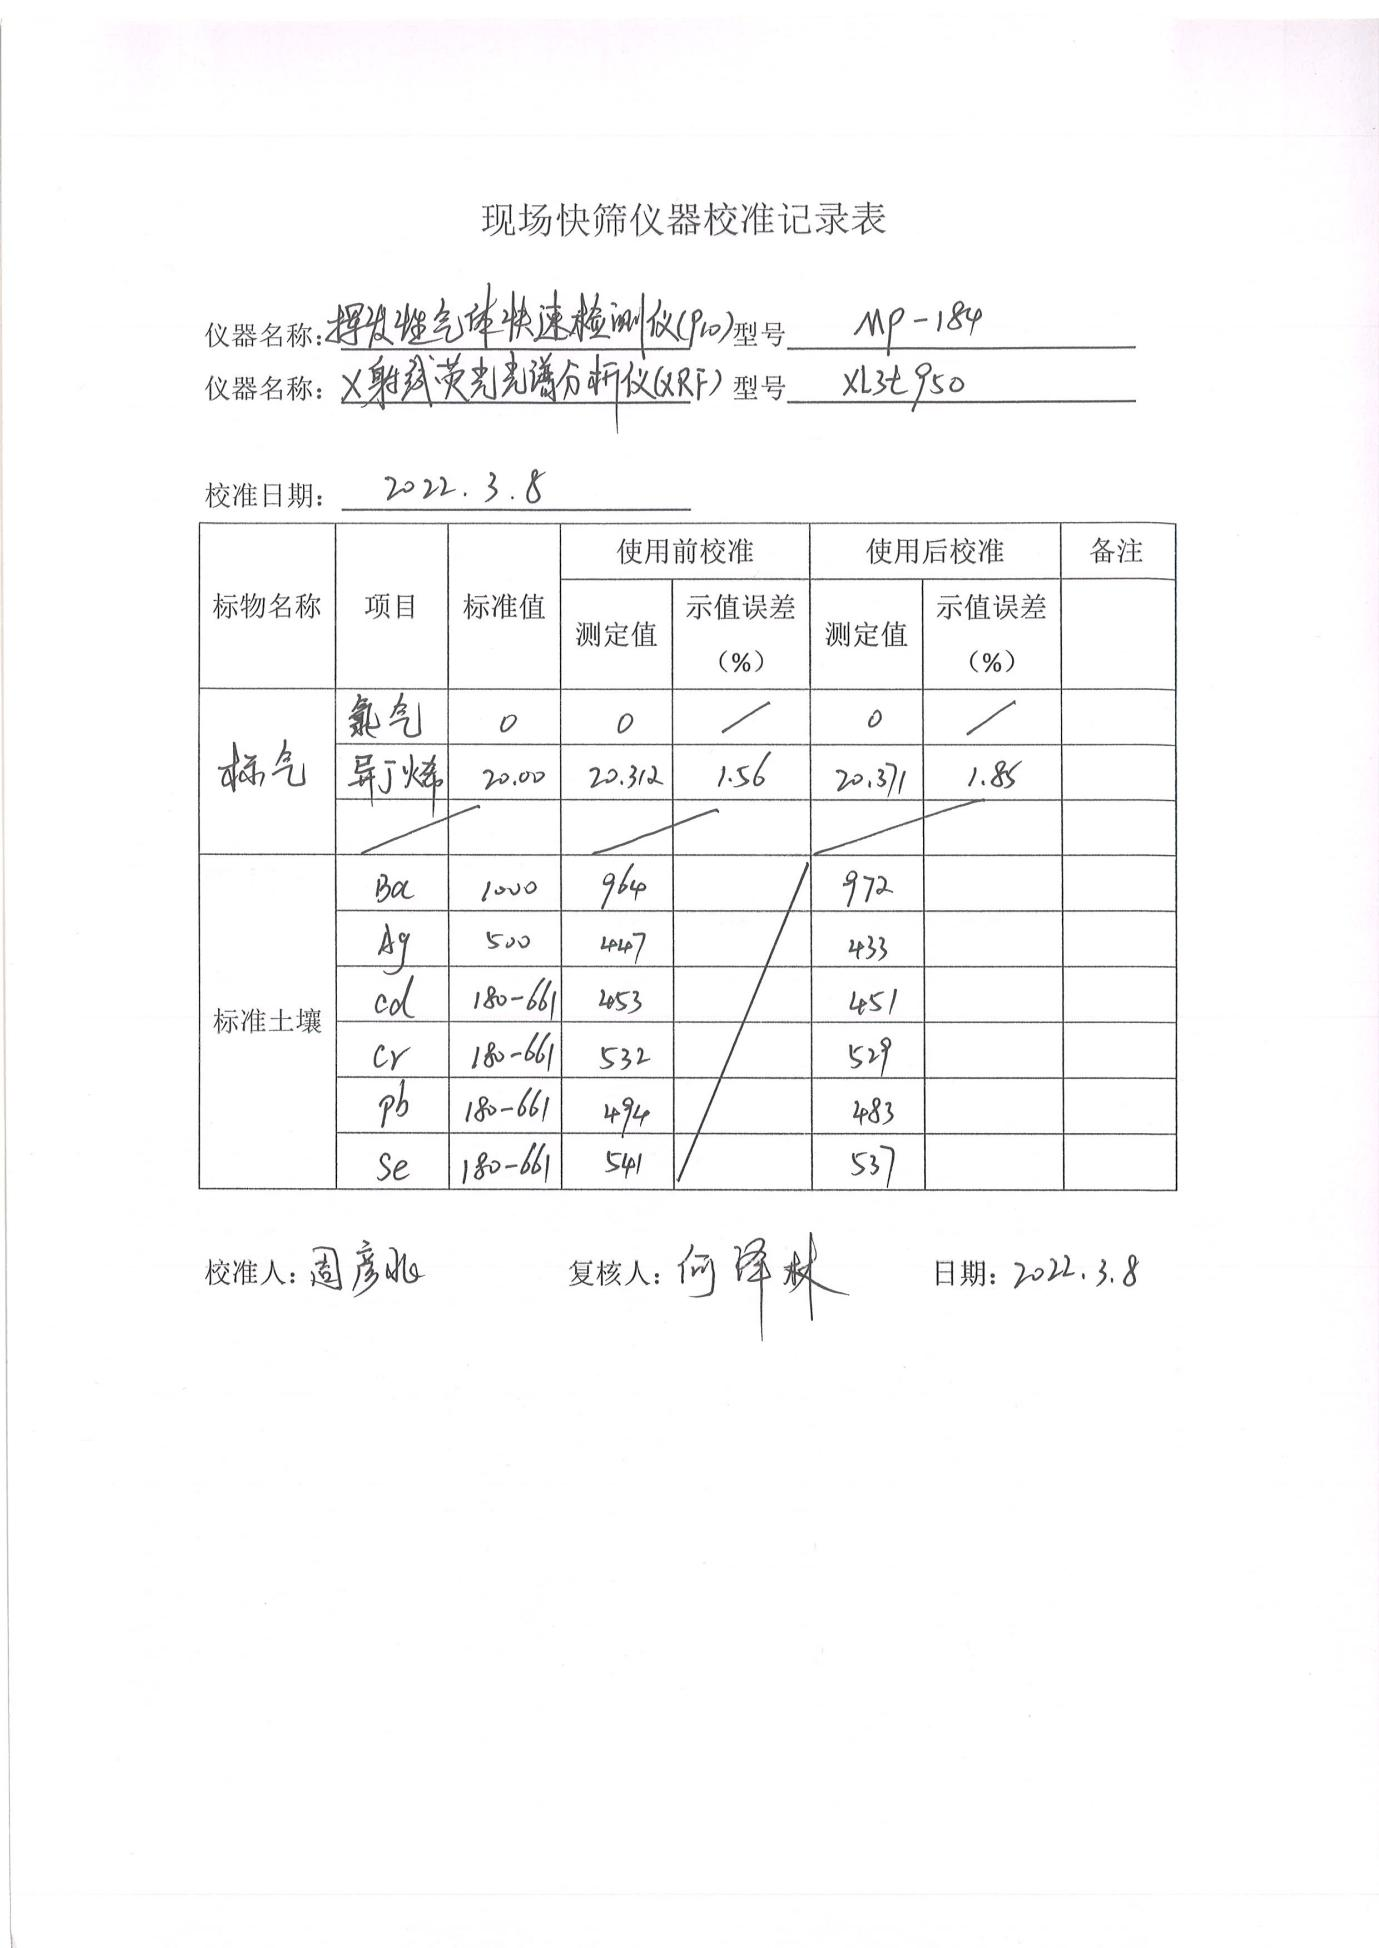 现场快筛仪器校准记录表
仪器名称：挥发性气体快速检测仪(PID) 型号 MP-184
仪器名称：X射线荧光光谱分析仪(XRF) 型号 XL3t950
校准日期： 2022.3.8
标物名称 项目 标准值 使用前校准 使用后校准 备注
测定值 示值误差（%） 测定值 示值误差（%）
标气 氮气 0 0 / 0 /
异丁烯 20.00 20.312 1.56 20.371 1.85
标准土壤 Ba 1000 964 972
Ag 500 447 433
cd 180-661 453 451
Cr 180-661 532 529
pb 180-661 494 483
Se 180-661 541 537
校准人：周彦兆 复核人：何泽林 日期：2022.3.8